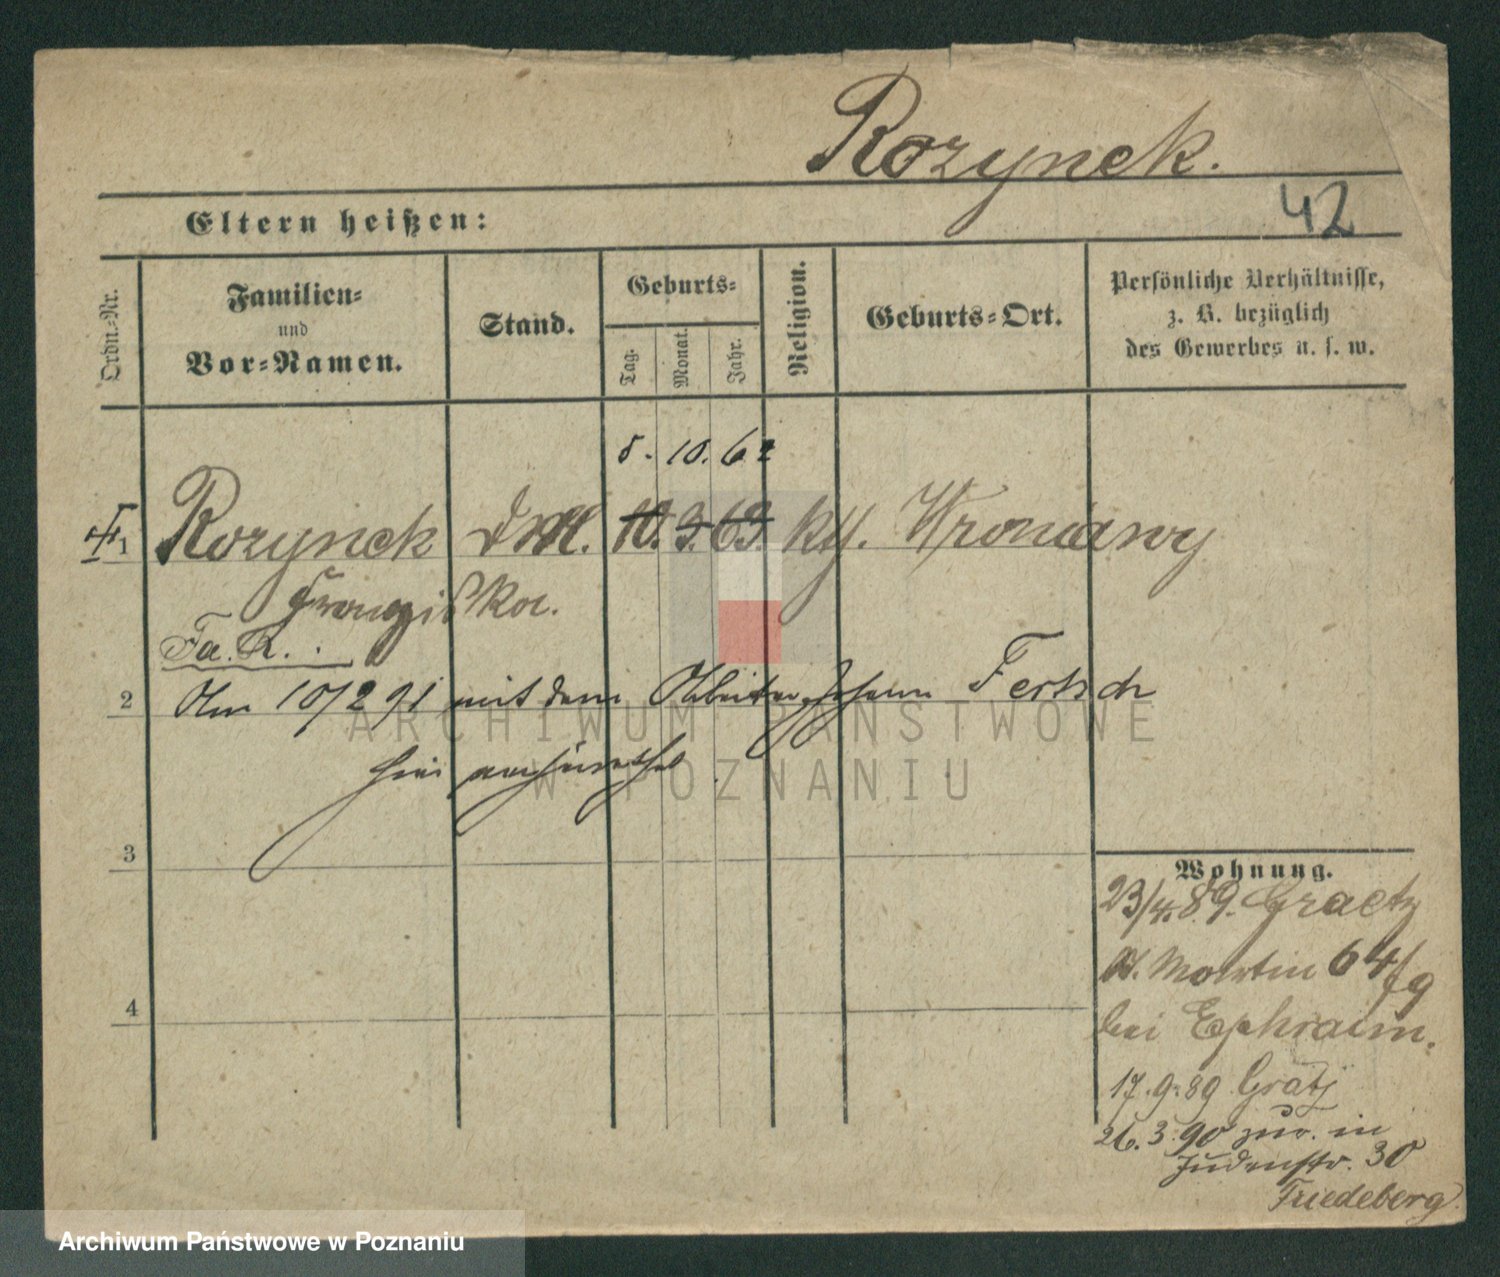 Rozynek.
42
Eltern heißen:
Ordn.-Nr.
Familien-
und
Vor-Namen.
Stand.
Geburts-
Tag.
Monat.
Jahr.
Religion.
Geburts-Ort.
Persönliche Verhältnisse,
z. B. bezüglich
des Gewerbes u. s. w.
8. 10. 62
1 Rozynek 10. 3. 63. kth. Wroniawy
Franziska.
Fa. R.
2 Am 10/2 91 mit dem Arbeiter Johann Fertsch
hier verheirathet
ARCHIWUM PAŃSTWOWE
W POZNANIU
3
Wohnung.
23/4. 89. Graetz
St. Martin 64/9
4
bei Ephraim.
17. 9. 89 Grätz
26. 3. 90 zur. in
Judenstr. 30
Friedeberg.
Archiwum Państwowe w Poznaniu